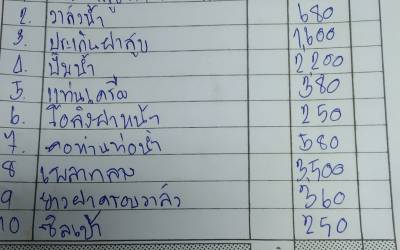 2. วาล์วน้ำ 680
3. ประเก็นฝาสูบ 1,600
4. ปั๊มน้ำ 2,200
5. แท่นเครื่อง 380
6. ซีลฝาหน้า 250
7. คอห่านท่อน้ำ 580
8 เพลากลาง 3,500
9 ยางฝาครอบวาล์ว 360
10 ซิลเป้า 250